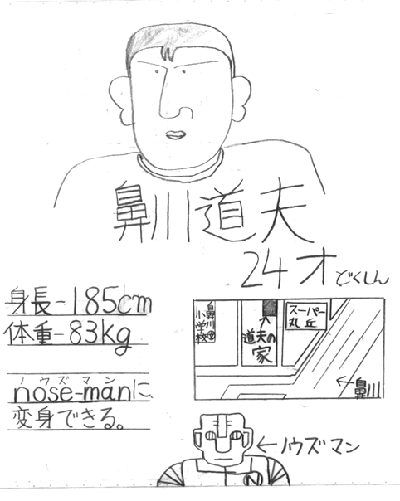 鼻川道夫
24才どくしん
身長-185cm
体重-83kg
ノウズマン
nose-manに
変身できる。
鼻川
小学校
道夫の
家
スーパー
丸丘
鼻川
←ノウズマン
N